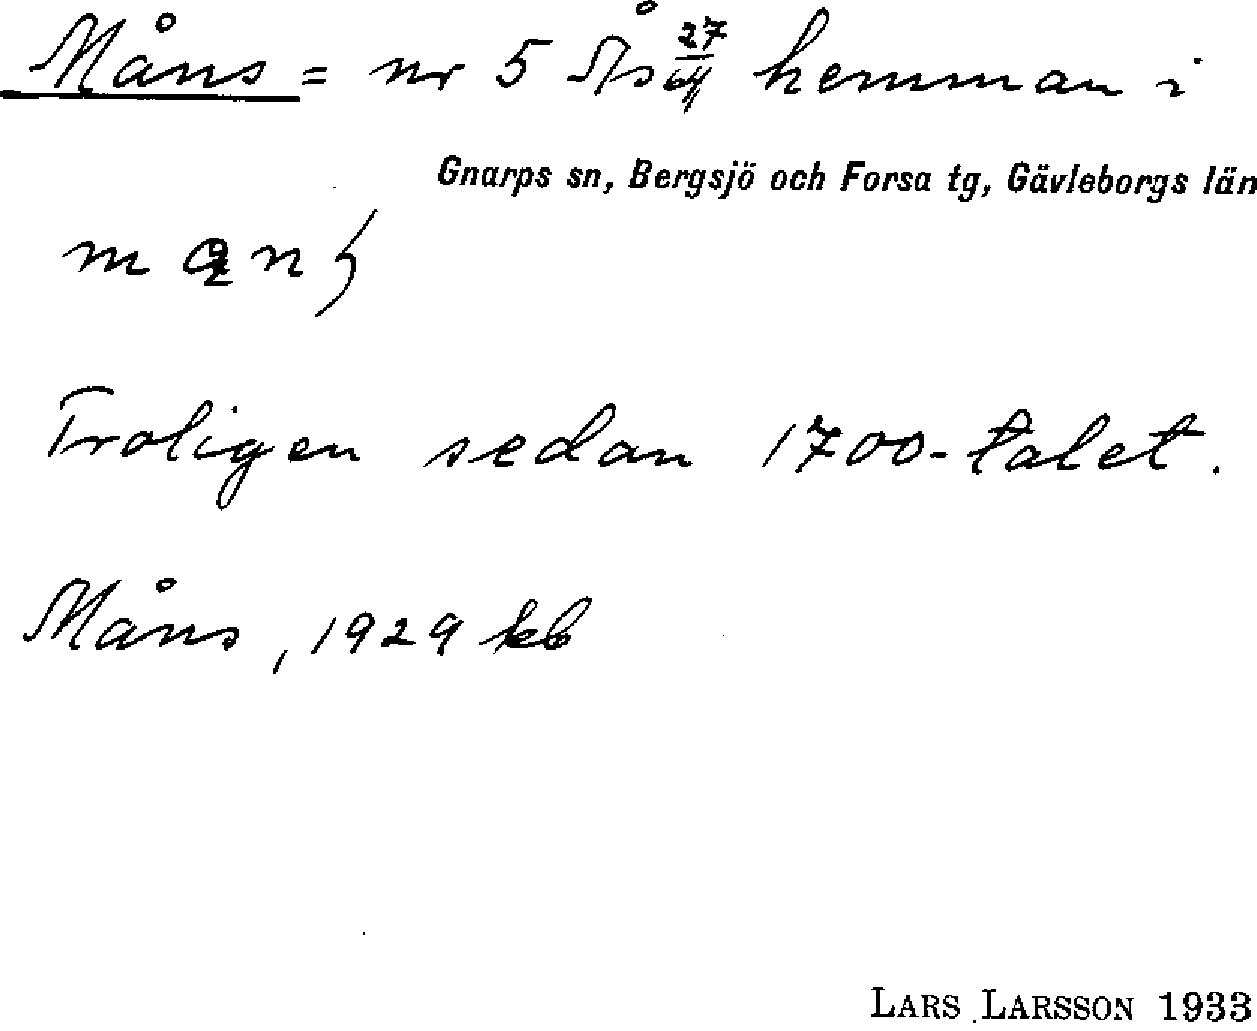 Måns = nr 5 Ås 27/64 hemman i
Gnarps sn, Bergsjö och Forsa tg, Gävleborgs län
Troligen sedan 1700-talet.
Måns, 1929 kb
LARS LARSSON 1933